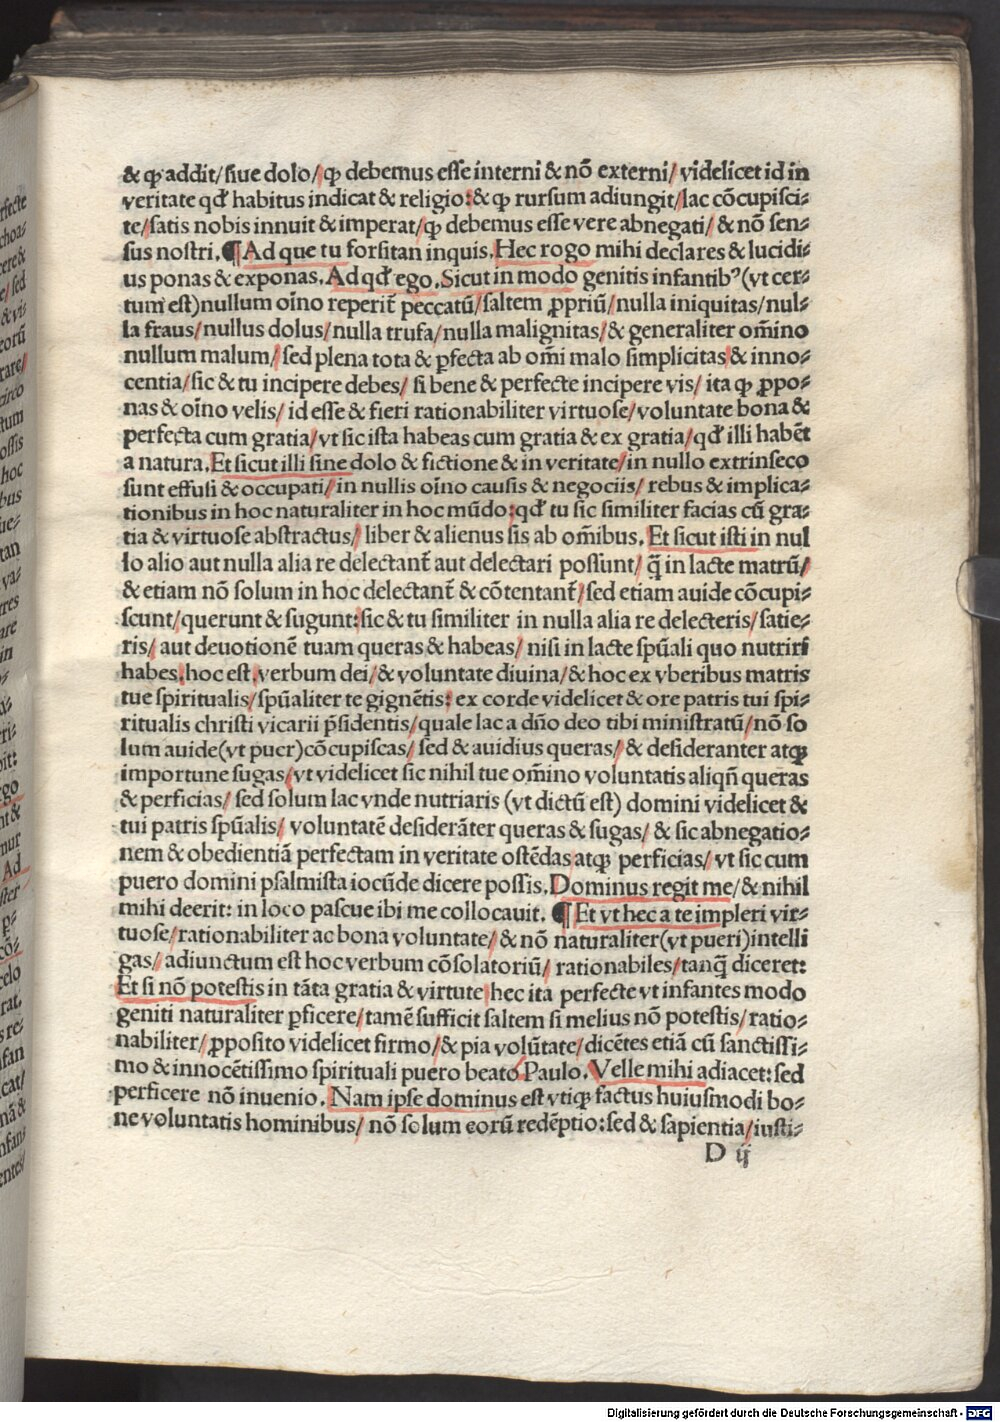 & ꝙ addit/ſiue dolo/ꝙ debemus eſſe interni & nõ externi/ videlicet id in
veritate qd' habitus indicat & religio:& ꝙ rurſum adiungit/lac cõcupiſci⸗
te/ſatis nobis innuit & imperat/ꝙ debemus eſſe vere abnegati/ & nõ ſen⸗
ſus noſtri. ¶ Ad que tu forſitan inquis. Hec rogo mihi declares & lucidi⸗
us ponas & exponas. Ad qd' ego. Sicut in modo genitis infantibꝰ (vt cer⸗
tum eſt) nullum oĩno reperit̃ peccatũ/ſaltem ꝓpriũ/nulla iniquitas/nul⸗
la fraus/nullus dolus/nulla trufa/nulla malignitas/& generaliter om̃ino
nullum malum/ ſed plena tota & ꝑfecta ab om̃i malo ſimplicitas & inno⸗
centia/ſic & tu incipere debes/ ſi bene & perfecte incipere vis/ ita ꝙ ꝓpo⸗
nas & oĩno velis/ id eſſe & fieri rationabiliter virtuoſe/voluntate bona &
perfecta cum gratia/vt ſic iſta habeas cum gratia & ex gratia/qd' illi habẽt
a natura. Et ſicut illi ſine dolo & fictione & in veritate/in nullo extrinſeco
ſunt effuſi & occupati/in nullis oĩno cauſis & negociis/ rebus & implica⸗
tionibus in hoc naturaliter in hoc mũdo:qd' tu ſic ſimiliter facias cũ gra⸗
tia & virtuoſe abſtractus/ liber & alienus ſis ab om̃ibus. Et ſicut iſti in nul
lo alio aut nulla alia re delectant̃ aut delectari poſſunt/ q̃ in lacte matrũ/
& etiam nõ ſolum in hoc delectant̃ & cõtentant̃/ſed etiam auide cõcupi⸗
ſcunt/querunt & ſugunt:ſic & tu ſimiliter in nulla alia re delecteris/ſatie⸗
ris/ aut deuotionẽ tuam queras & habeas/ niſi in lacte ſpũali quo nutriri
habes.hoc eſt.verbum dei/& voluntate diuina/& hoc ex vberibus matris
tue ſpiritualis/ſpũaliter te gignẽtis: ex corde videlicet & ore patris tui ſpi⸗
ritualis chriſti vicarii p̃ſidentis/quale lac a dño deo tibi miniſtratũ/nõ ſo
lum auide(vt puer)cõcupiſcas/ ſed & auidius queras/ & deſideranter atqꝫ
importune ſugas/vt videlicet ſic nihil tue om̃ino voluntatis aliqñ queras
& perficias/ ſed ſolum lac vnde nutriaris (vt dictũ eſt) domini videlicet &
tui patris ſpũalis/ voluntatẽ deſiderãter queras & ſugas/ & ſic abnegatio⸗
nem & obedientiã perfectam in veritate oſtẽdas atqꝫ perficias/ vt ſic cum
puero domini pſalmiſta iocũde dicere poſſis. Dominus regit me/& nihil
mihi deerit: in loco paſcue ibi me collocauit. ¶ Et vt hec a te impleri vir⸗
tuoſe/rationabiliter ac bona voluntate/ & nõ naturaliter(vt pueri)intelli
gas/ adiunctum eſt hoc verbum cõſolatoriũ/ rationabiles/tanq̃ diceret:
Et ſi nõ poteſtis in tãta gratia & virtute hec ita perfecte vt infantes modo
geniti naturaliter ꝑficere/tamẽ ſufficit ſaltem ſi melius nõ poteſtis/ratio⸗
nabiliter/ ꝓpoſito videlicet firmo/& pia volũtate/dicẽtes etiã cũ ſanctiſſi⸗
mo & innocẽtiſſimo ſpirituali puero beato Paulo. Velle mihi adiacet:ſed
perficere nõ inuenio. Nam ipſe dominus eſt vtiqꝫ factus huiuſmodi bo⸗
ne voluntatis hominibus/ nõ ſolum eorũ redẽptio:ſed & ſapientia/iuſti⸗
D ij
Digitalisierung gefördert durch die Deutsche Forschungsgemeinschaft - DFG